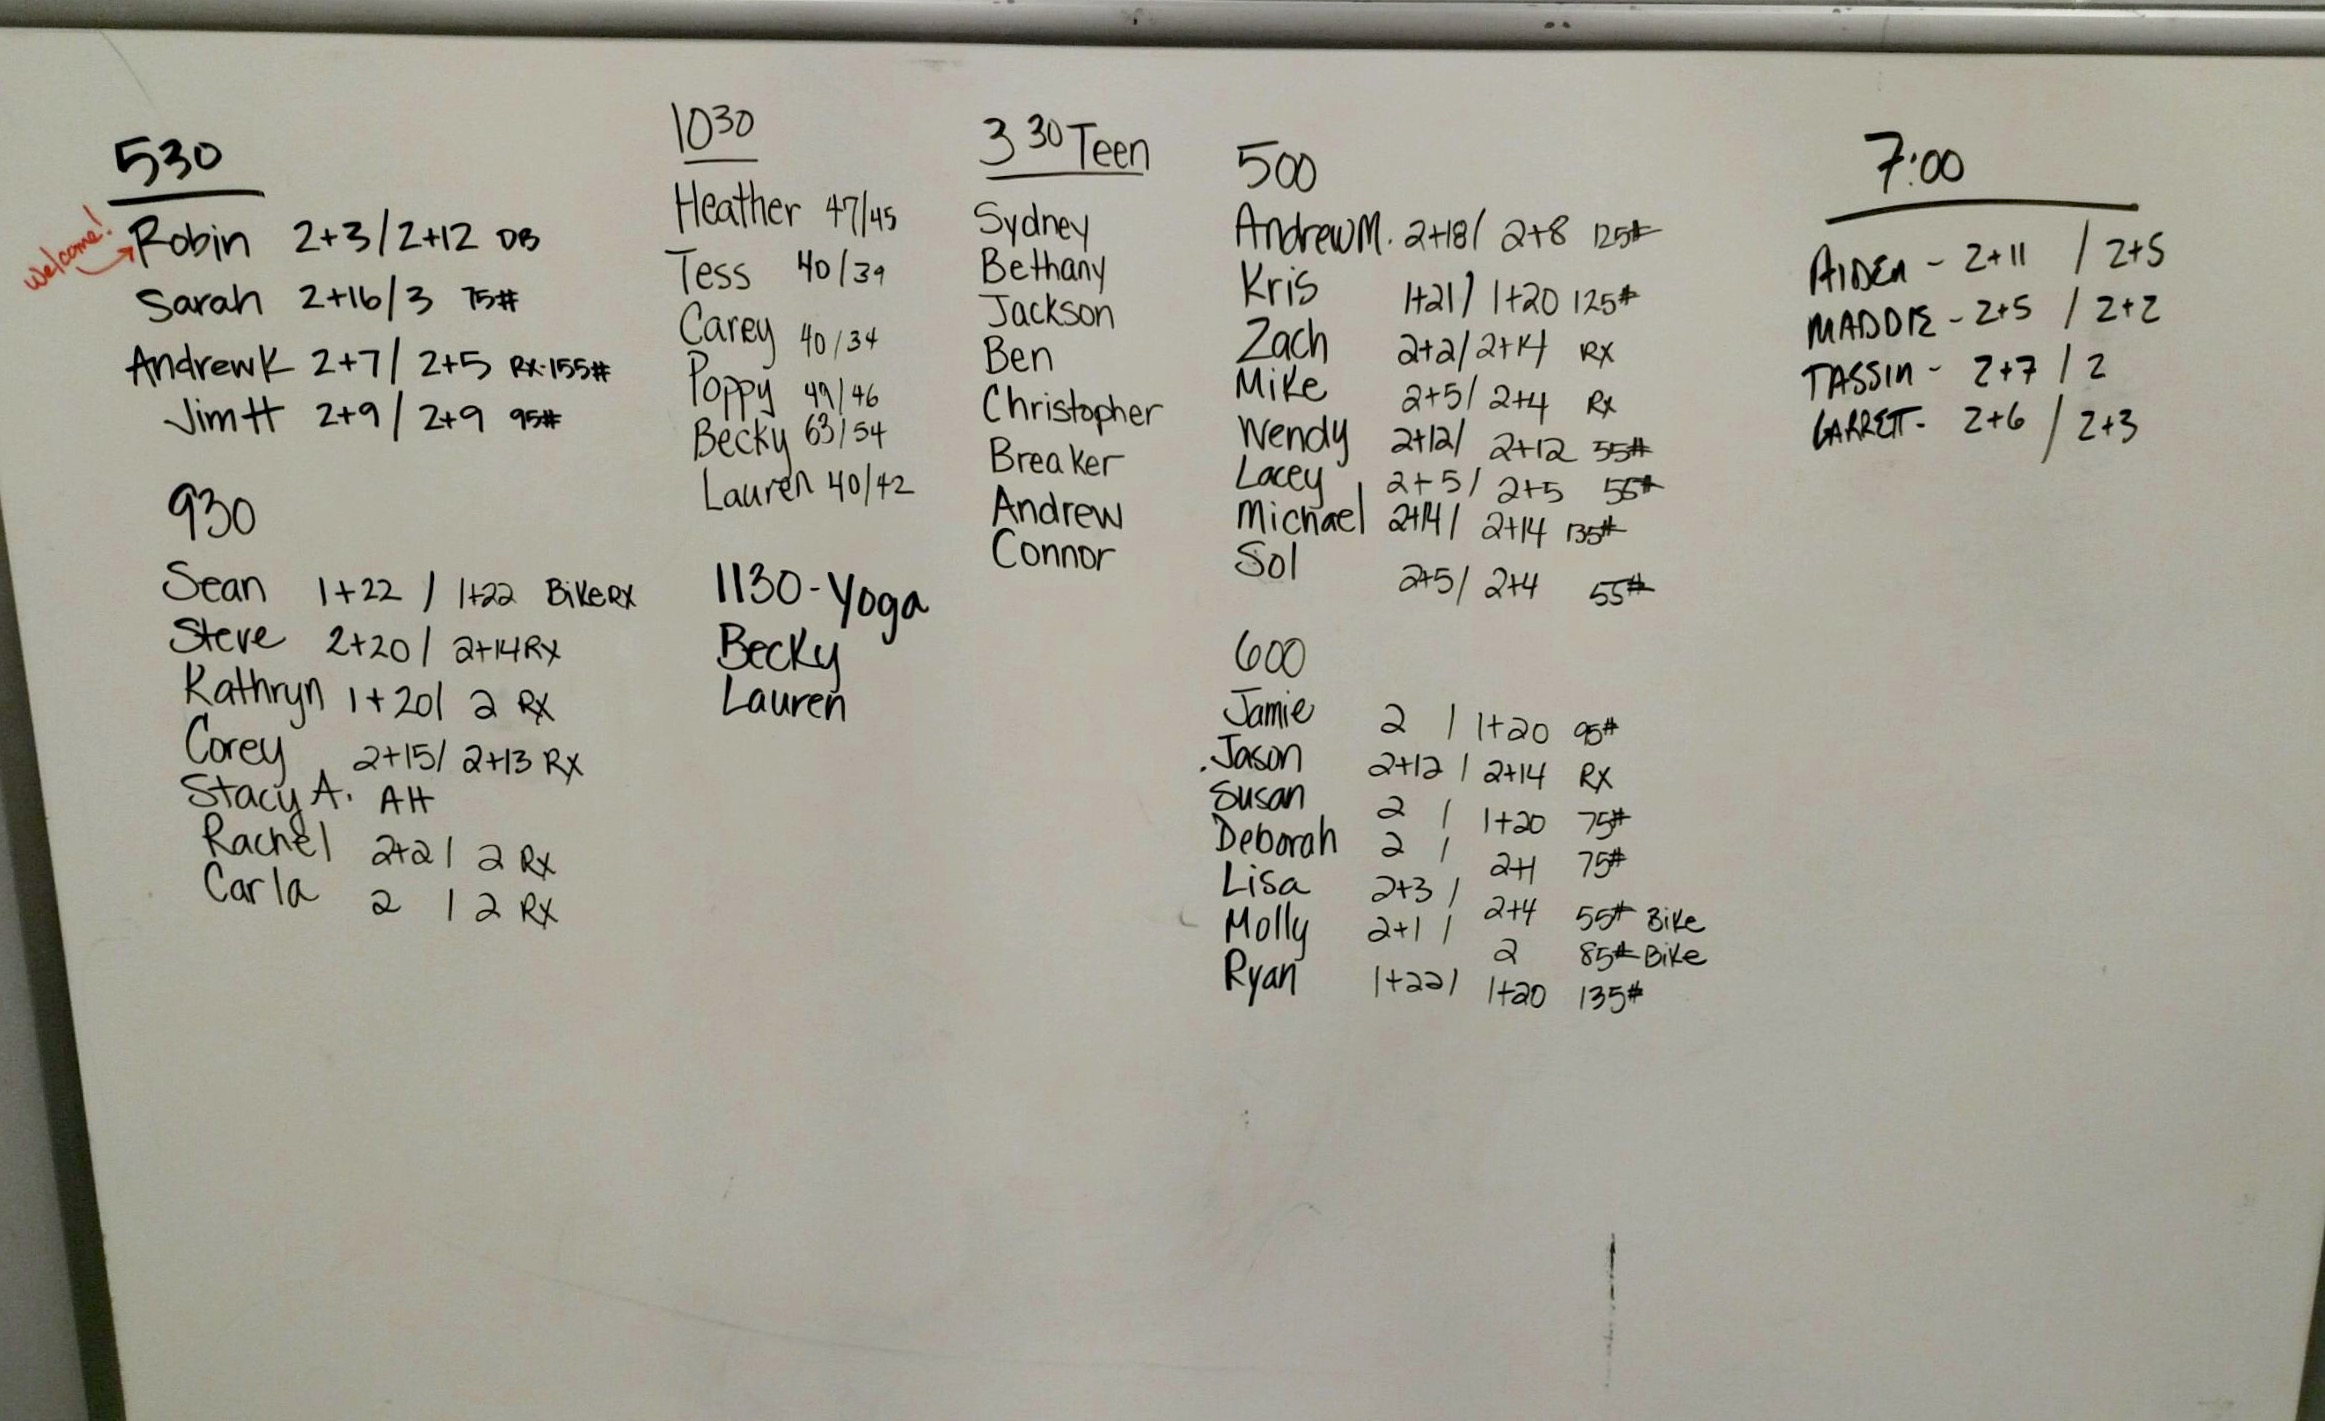 530
welcome!
Robin 2+3/2+12 DB
Sarah 2+16/3 75#
AndrewK 2+7/ 2+5 RX-155#
JimH 2+9/ 2+9 95#
930
Sean 1+22 / 1+22 BikeRX
Steve 2+20/ 2+14RX
Kathryn 1+20/ 2 RX
Corey 2+15/ 2+13 RX
Stacy A. AH
Rachel 2+2/ 2 RX
Carla 2 / 2 RX
1030
Heather 47/45
Tess 40/39
Carey 40/34
Poppy 49/46
Becky 63/54
Lauren 40/42
1130-Yoga
Becky
Lauren
3 30 Teen
Sydney
Bethany
Jackson
Ben
Christopher
Breaker
Andrew
Connor
500
AndrewM. 2+18/ 2+8 125#
Kris 1+21/ 1+20 125#
Zach 2+2/ 2+14 RX
Mike 2+5/ 2+4 RX
Wendy 2+12/ 2+12 55#
Lacey 2+5/ 2+5 55#
Michael 2+14/ 2+14 135#
Sol 2+5/ 2+4 55#
600
Jamie 2 / 1+20 95#
Jason 2+12 / 2+14 RX
Susan 2 / 1+20 75#
Deborah 2 / 2+1 75#
Lisa 2+3 / 2+4 55# Bike
Molly 2+1 / 2 85# Bike
Ryan 1+22/ 1+20 135#
7:00
AIDEN - 2+11 / 2+5
MADDIE - 2+5 / 2+2
TASSIN - 2+7 / 2
GARRETT- 2+6 / 2+3